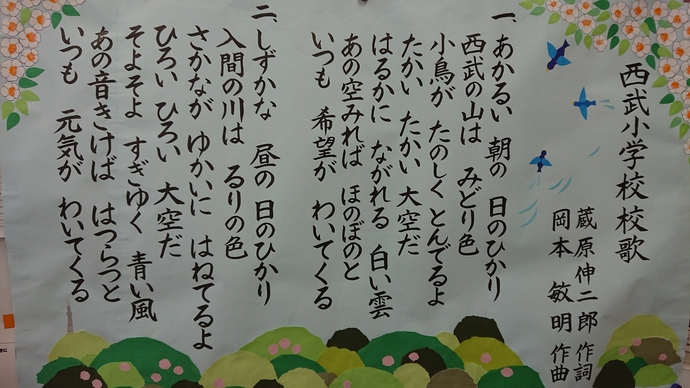 西武小学校校歌
蔵原伸二郎 作詞
岡本敏明 作曲
一、あかるい 朝の 日のひかり
西武の山は みどり色
小鳥が たのしく とんでるよ
たかい たかい 大空だ
はるかに ながれる 白い雲
あの空みれば ほのぼのと
いつも 希望が わいてくる
二、しずかな 昼の 日のひかり
入間の川は るりの色
さかなが ゆかいに はねてるよ
ひろい ひろい 大空だ
そよそよ すぎゆく 青い風
あの音きけば はつらつと
いつも 元気が わいてくる